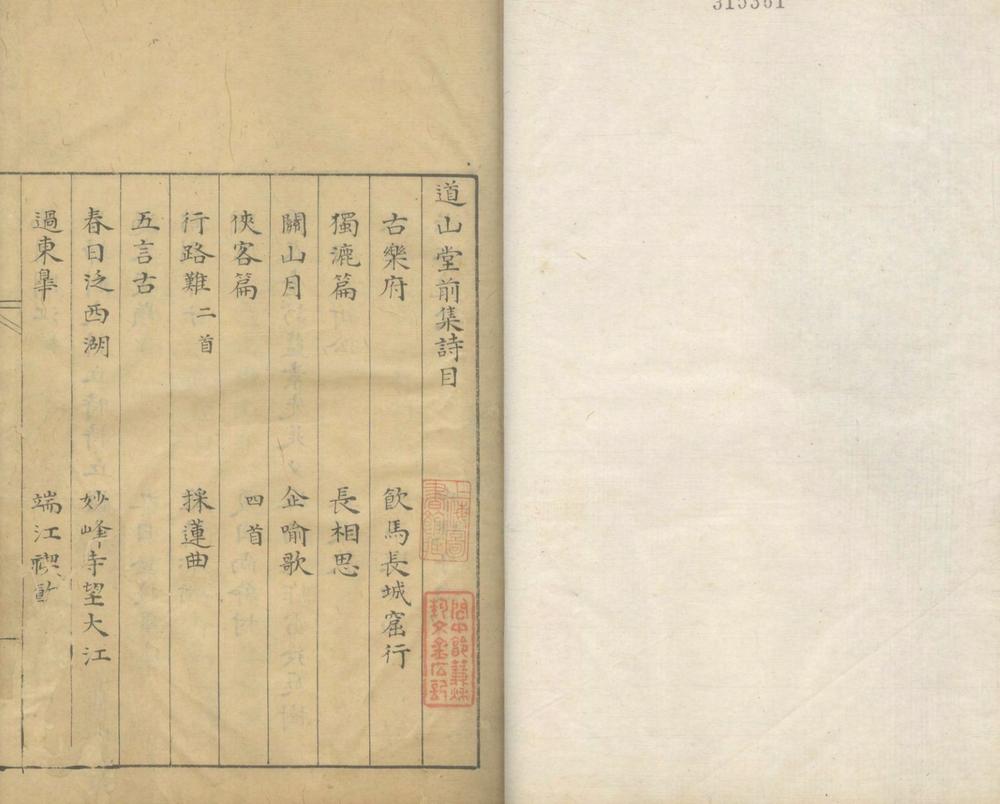 315361
道山堂前集詩目
古樂府 飲馬長城窟行
獨漉篇 長相思
關山月 企喻歌
俠客篇 四首
行路難二首 採蓮曲
五言古
春日泛西湖 妙峰寺望大江
過東臯 端江禊